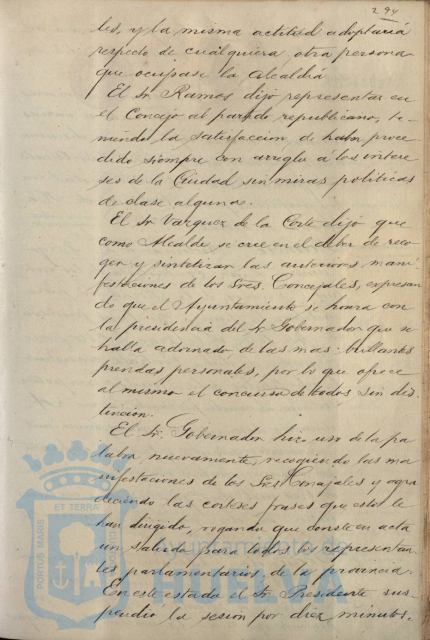 294
les, y la misma actitud adoptaria
respecto de cualquiera otra persona
que ocupase la Alcaldia
El Sr. Ramos dijo representar en
el Concejo al partido republicano, te-
niendo la satisfaccion de haber proce
dido siempre con arreglo a los intere
ses de la Ciudad sin miras politicas
de clase alguna.
El Sr. Vazquez de la Corte dijo que
como Alcalde, se cree en el deber de reco-
ger y sintetizar las anteriores mani-
festaciones de los Sres. Concejales, expresan
do que el Ayuntamiento se honra con
la presidencia del Sr. Gobernador que se
halla adornado de las mas brillantes
prendas personales, por lo que ofrece
al mismo el concurso de todos sin dis-
tincion.
El Sr. Gobernador hizo uso de la pa
labra nuevamente, recogiendo las ma
nifestaciones de los Sres. Concejales y agra
deciendo las corteses frases que estos le
han dirigido, rogando que conste en acta
un saludo para todos los representan
tes parlamentarios de la provincia.
En este estado el Sr. Presidente sus
pendio la sesion por diez minutos.
PORTUS MARIS ET TERRAE CUSTODIA
HUELVA